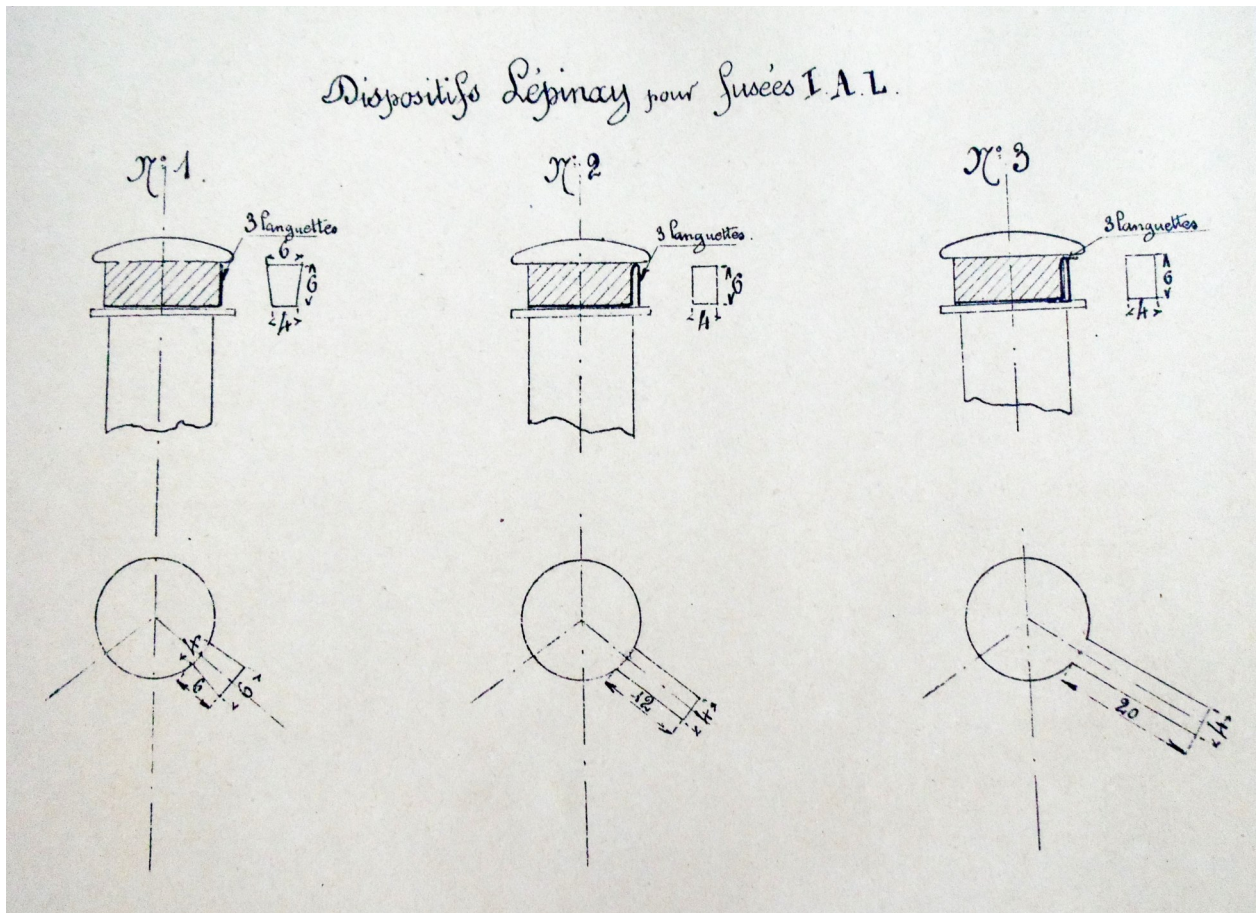 Dispositifs Lépinay pour fusées I.A.L.
N° 1.
N° 2
N° 3
3 languettes
6
6
4
3 languettes.
6
4
3 languettes
6
4
4
6
6
12
4
20
4